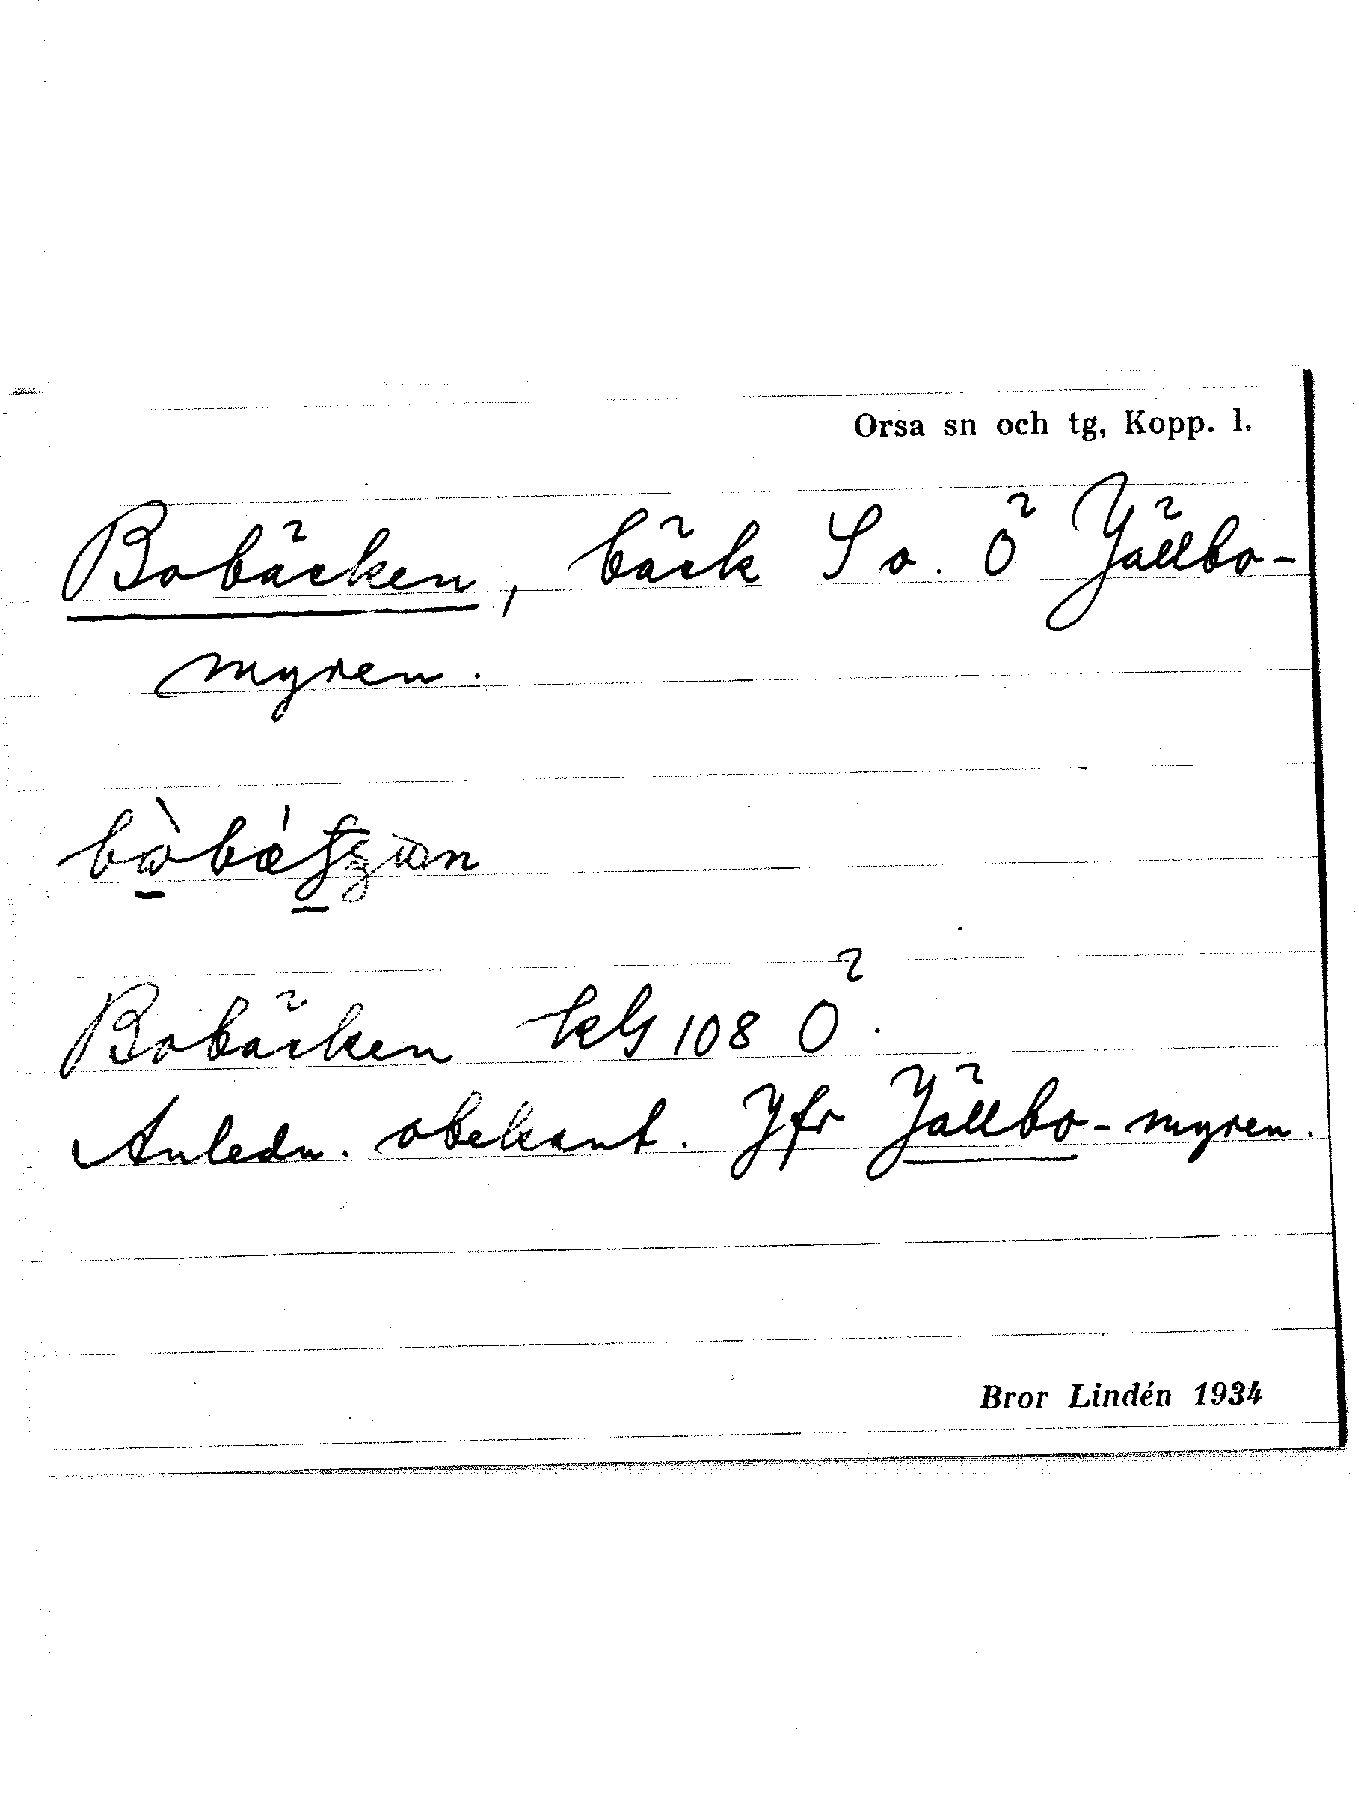 Orsa sn och tg, Kopp. l.
Bobäcken, bäck S o. Ö Jällbo-
myren.
Bobäcken kbl 108 Ö.
Anledn. obekant. Jfr Jällbo-myren.
Bror Lindén 1934